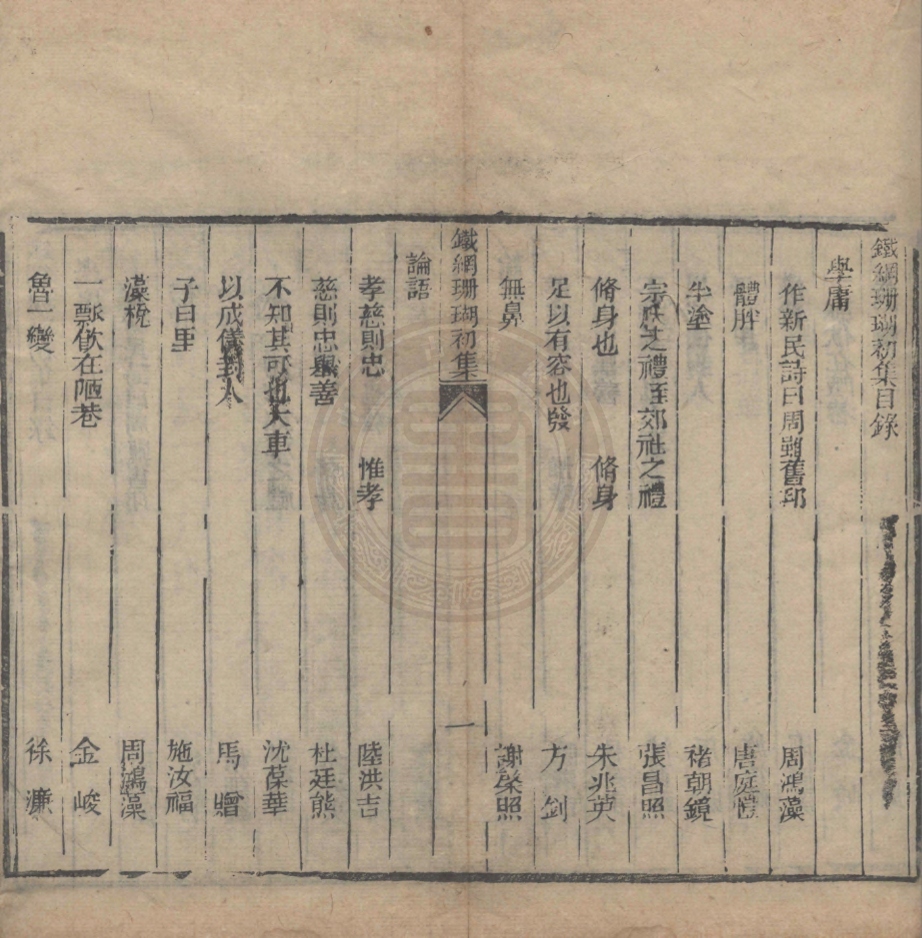 鐵網珊瑚初集目錄
學庸
作新民詩曰周雖舊邦 周鴻藻
體胖 唐庭
半塗 褚朝鏡
宗廟之禮至郊社之禮 張昌照
脩身也 脩身 朱兆英
足以有容也發 方釗
無臭 謝榮照
鐵網珊瑚初集 一
論語
孝慈則忠 惟孝 陸洪吉
慈則忠舉善 杜廷熊
不知其可也大車 沈葆華
以成儀封人 馬贈
子曰里 施汝福
藻梲 周鴻藻
一瓢飲在陋巷 金峻
魯一變 徐濂